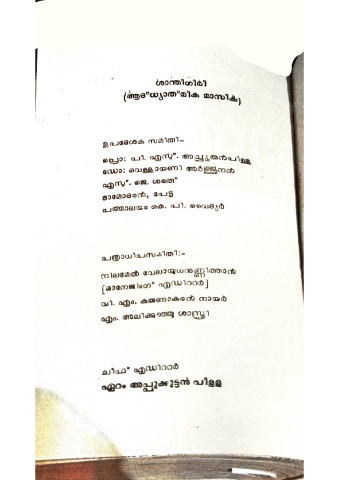 ശാന്തിഗിരി
(ആദ്ധ്യാത്മിക മാസിക)
ഉപദേശക സമിതി—
പ്രൊ: പി. എസ്. അച്യുതൻപിള്ള
ഡോ: വെള്ളായണി അർജ്ജുനൻ
എസ്. ജെ. ശരത്
ദാമോദരൻ, പേട്ട
പത്മാലയം കെ. പി. വൈദ്യർ
പത്രാധിപസമിതി:—
നിലമേൽ വേലായുധനുണ്ണിത്താൻ
[മാനേജിംഗ് എഡിററർ]
വി. എം. കരുണാകരൻ നായർ
എം. അലിക്കുഞ്ഞു ശാസ്ത്രി
ചീഫ് എഡിററർ
ഏററം അപ്പുക്കുട്ടൻ പിളള